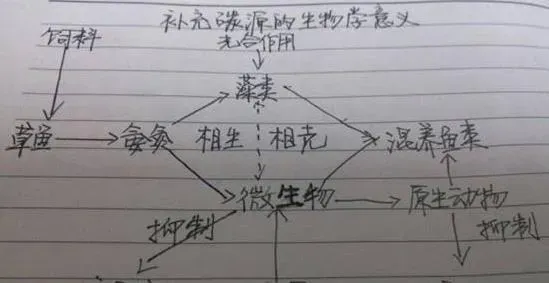 补充碳源的生物学意义
饲料
光合作用
藻类
草鱼 氨氮 相生 相克 混养鱼类
微生物 原生动物
抑制 抑制